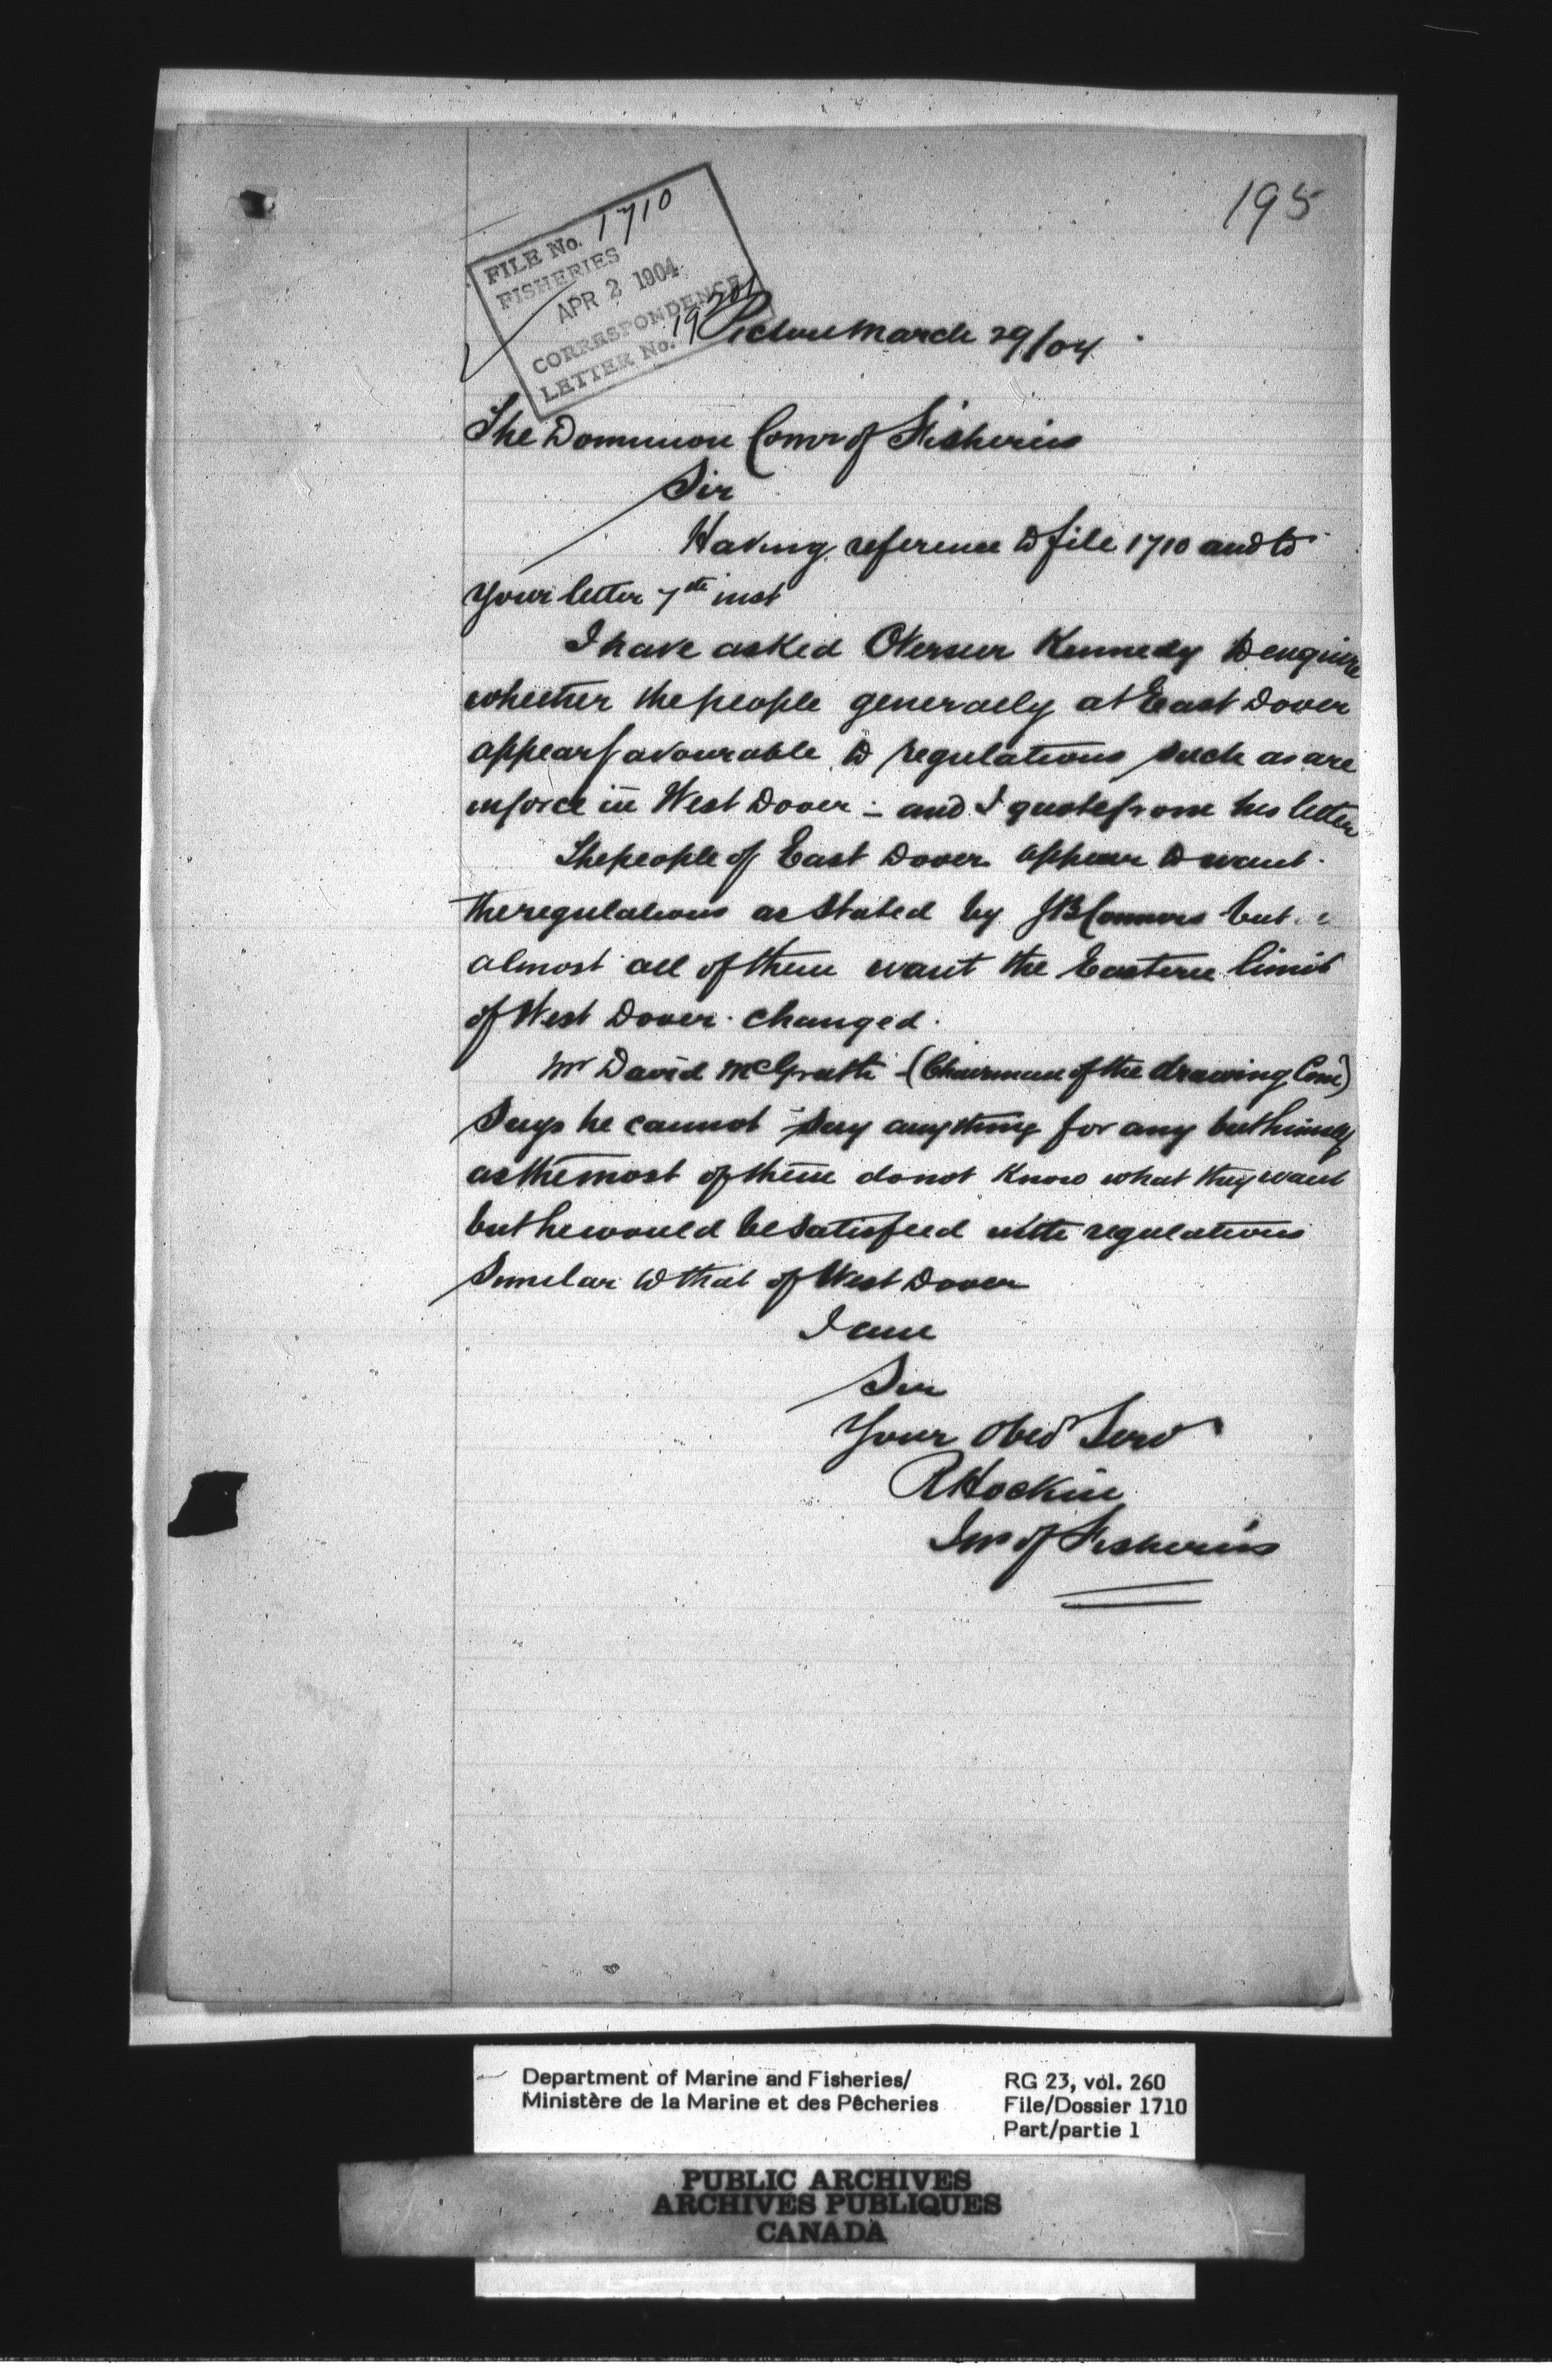 195
FILE No. 1710
FISHERIES
APR 2 1904
CORRESPONDENCE
LETTER No. 19201
Pictou March 29/04
The Dominion Comr of Fisheries
Sir
Having reference to file 1710 and to
your letter 7th inst
I have asked Overseer Kennedy to enquire
whether the people generally at East Dover
appear favourable to regulations such as are
inforce in West Dover - and I quote from his letter
The people of East Dover appear to want
the regulations as stated by JB Connors but
almost all of them want the Eastern limit
of West Dover changed.
Mr David McGrath - (Chairman of the drawing Com)
says he cannot say anything for any but himself
as the most of them do not know what they want
but he would be satisfied with regulations
similar to that of West Dover
I am
Sir
Your Obed Serv
R Hockin
Ins of Fisheries
Department of Marine and Fisheries/
Ministère de la Marine et des Pêcheries
RG 23, vol. 260
File/Dossier 1710
Part/partie 1
PUBLIC ARCHIVES
ARCHIVES PUBLIQUES
CANADA